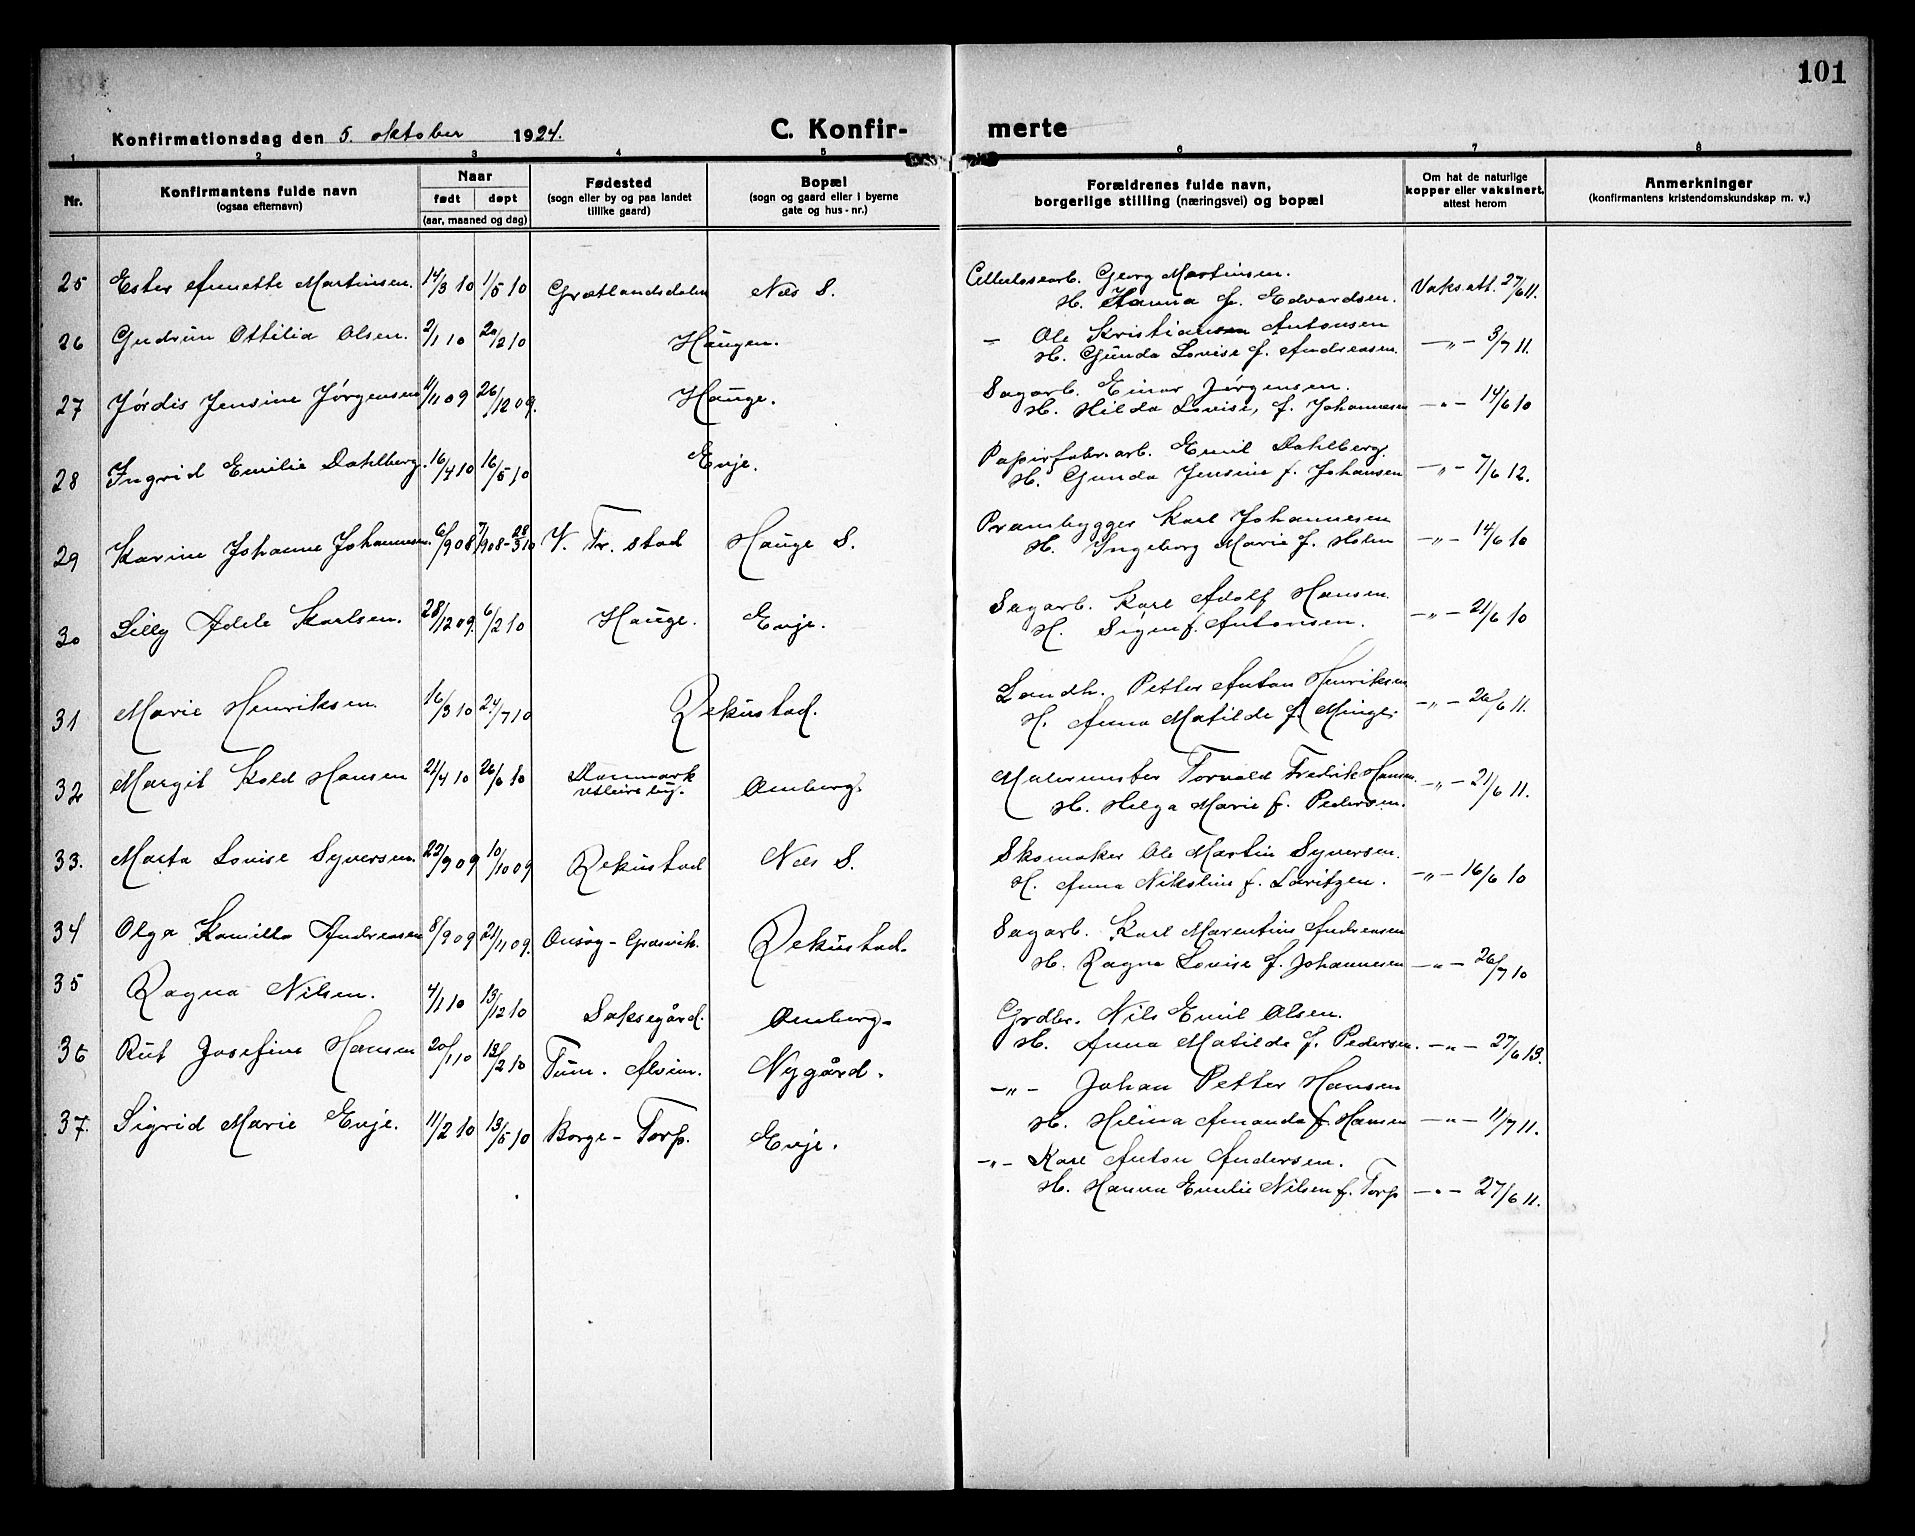 101
Konfirmationsdag den 5. oktober 1924.
C. Konfir- merte
1 2 3 4 5 6 7 8
Nr.
Konfirmantens fulde navn
(ogsaa efternavn)
Naar
født døpt
(aar, maaned og dag)
Fødested
(sogn eller by og paa landet
tillike gaard)
Bopæl
(sogn og gaard eller i byerne
gate og hus-nr.)
Forældrenes fulde navn,
borgerlige stilling (næringsvei) og bopæl
Om hat de naturlige
kopper eller vaksinert,
attest herom
Anmerkninger
(konfirmantens kristendomskundskap m. v.)
25 Ester Annette Martinsen. 14/3 10 1/5 10 Grætlandsdalen Næs S. Cellulosearb. Georg Martinsen.
H. Hanna f. Edvardsen. Vaks.att. 27/6 11.
26 Gudrun Ottilia Olsen. 2/1 10 20/2 10 Haugen. - Ole Kristiansen Antonsen
H. Gunda Lovise f. Andreasen. -"- 3/7 11.
27 Jørdis Jensine Jørgensen 11/11 09 26/12 09. Hauge. Sagarb. Einar Jørgensen.
H. Hilda Lovise, f. Johannesen -"- 14/6 10
28 Ingrid Emilie Dahlberg. 16/4 10 16/5 10 Evje. Papirfabr.arb. Emil Dahlberg.
H. Gunda Jensine f. Johansen -"- 7/6 12.
29 Karine Johanne Johannesen. 6/9 08 7/9 08 - 28/3 10 V. Fr. stad Hauge S. Prambygger Karl Johannesen
H. Ingeborg Marie f. Holm -"- 14/6 10
30 Lilly Adele Karlsen. 28/12 09. 6/2 10 Hauge. Evje. Sagarb. Karl Adolf Hansen.
H. Signe f. Antonsen. -"- 21/6 10
31 Marie Henriksen. 16/3 10 24/7 10 Rekustad. Landh. Petter Anton Henriksen
H. Anna Matilde f. Minge. -"- 26/6 11.
32 Margit Kold Hansen 21/4 10 26/6 10 Danmark Omberg. Malermester Torvald Fredrik Hansen
H. Helga Marie f. Pedersen. -"- 21/6 11.
33. Marta Lovise Syversen. 22/9 09 10/10 09 Rekustad Næs S. Skomaker Ole Martin Syversen.
H. Anna Nikoline f. Lavritzen. -"- 16/6 10
34 Olga Kamilla Andreasen 8/9 09 21/11 09. Onsøy - Græsvik. Rekustad. Sagarb. Karl Marentius Andreasen
H. Ragna Lovise f. Johannesen -"- 26/7 10
35 Ragna Nilsen. 4/1 10 13/12 10 Saksegård. Omberg. Grdbr. Nils Emil Olsen.
H. Anna Matilde f. Pedersen. -"- 27/6 13.
36 Rut Josefine Hansen 20/1 10 13/2 10 Tune. Alvim. Nygård. -"- Johan Petter Hansen
H. Helina Amanda f. Hansen -"- 11/7 11.
37. Sigrid Marie Evje. 11/2 10 13/5 10 Borge - Torp. Evje. -"- Karl Anton Andersen.
H. Hanna Emilie Nilsen f. Torp -"- 27/6 11.